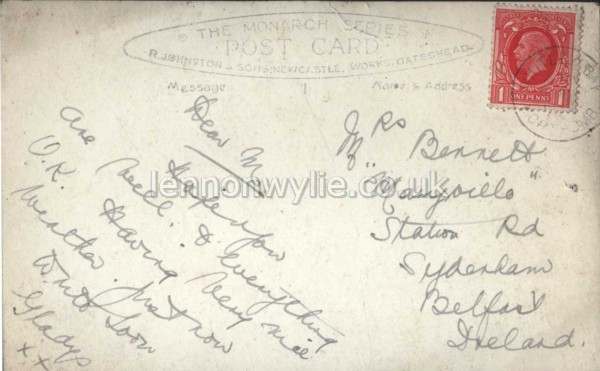 THE MONARCH SERIES
POST CARD
R. JOHNSTON & SONS, NEWCASTLE, WORKS, GATESHEAD.
Message
Name & Address
POSTAGE REVENUE
1 ONE PENNY 1
Dear M
Hope you
are well & everything
O.K. Having very nice
weather just now
write soon
Gladys
x x
Mrs Bennett
Station Rd
Sydenham
Belfast
Ireland.
lennonwylie.co.uk